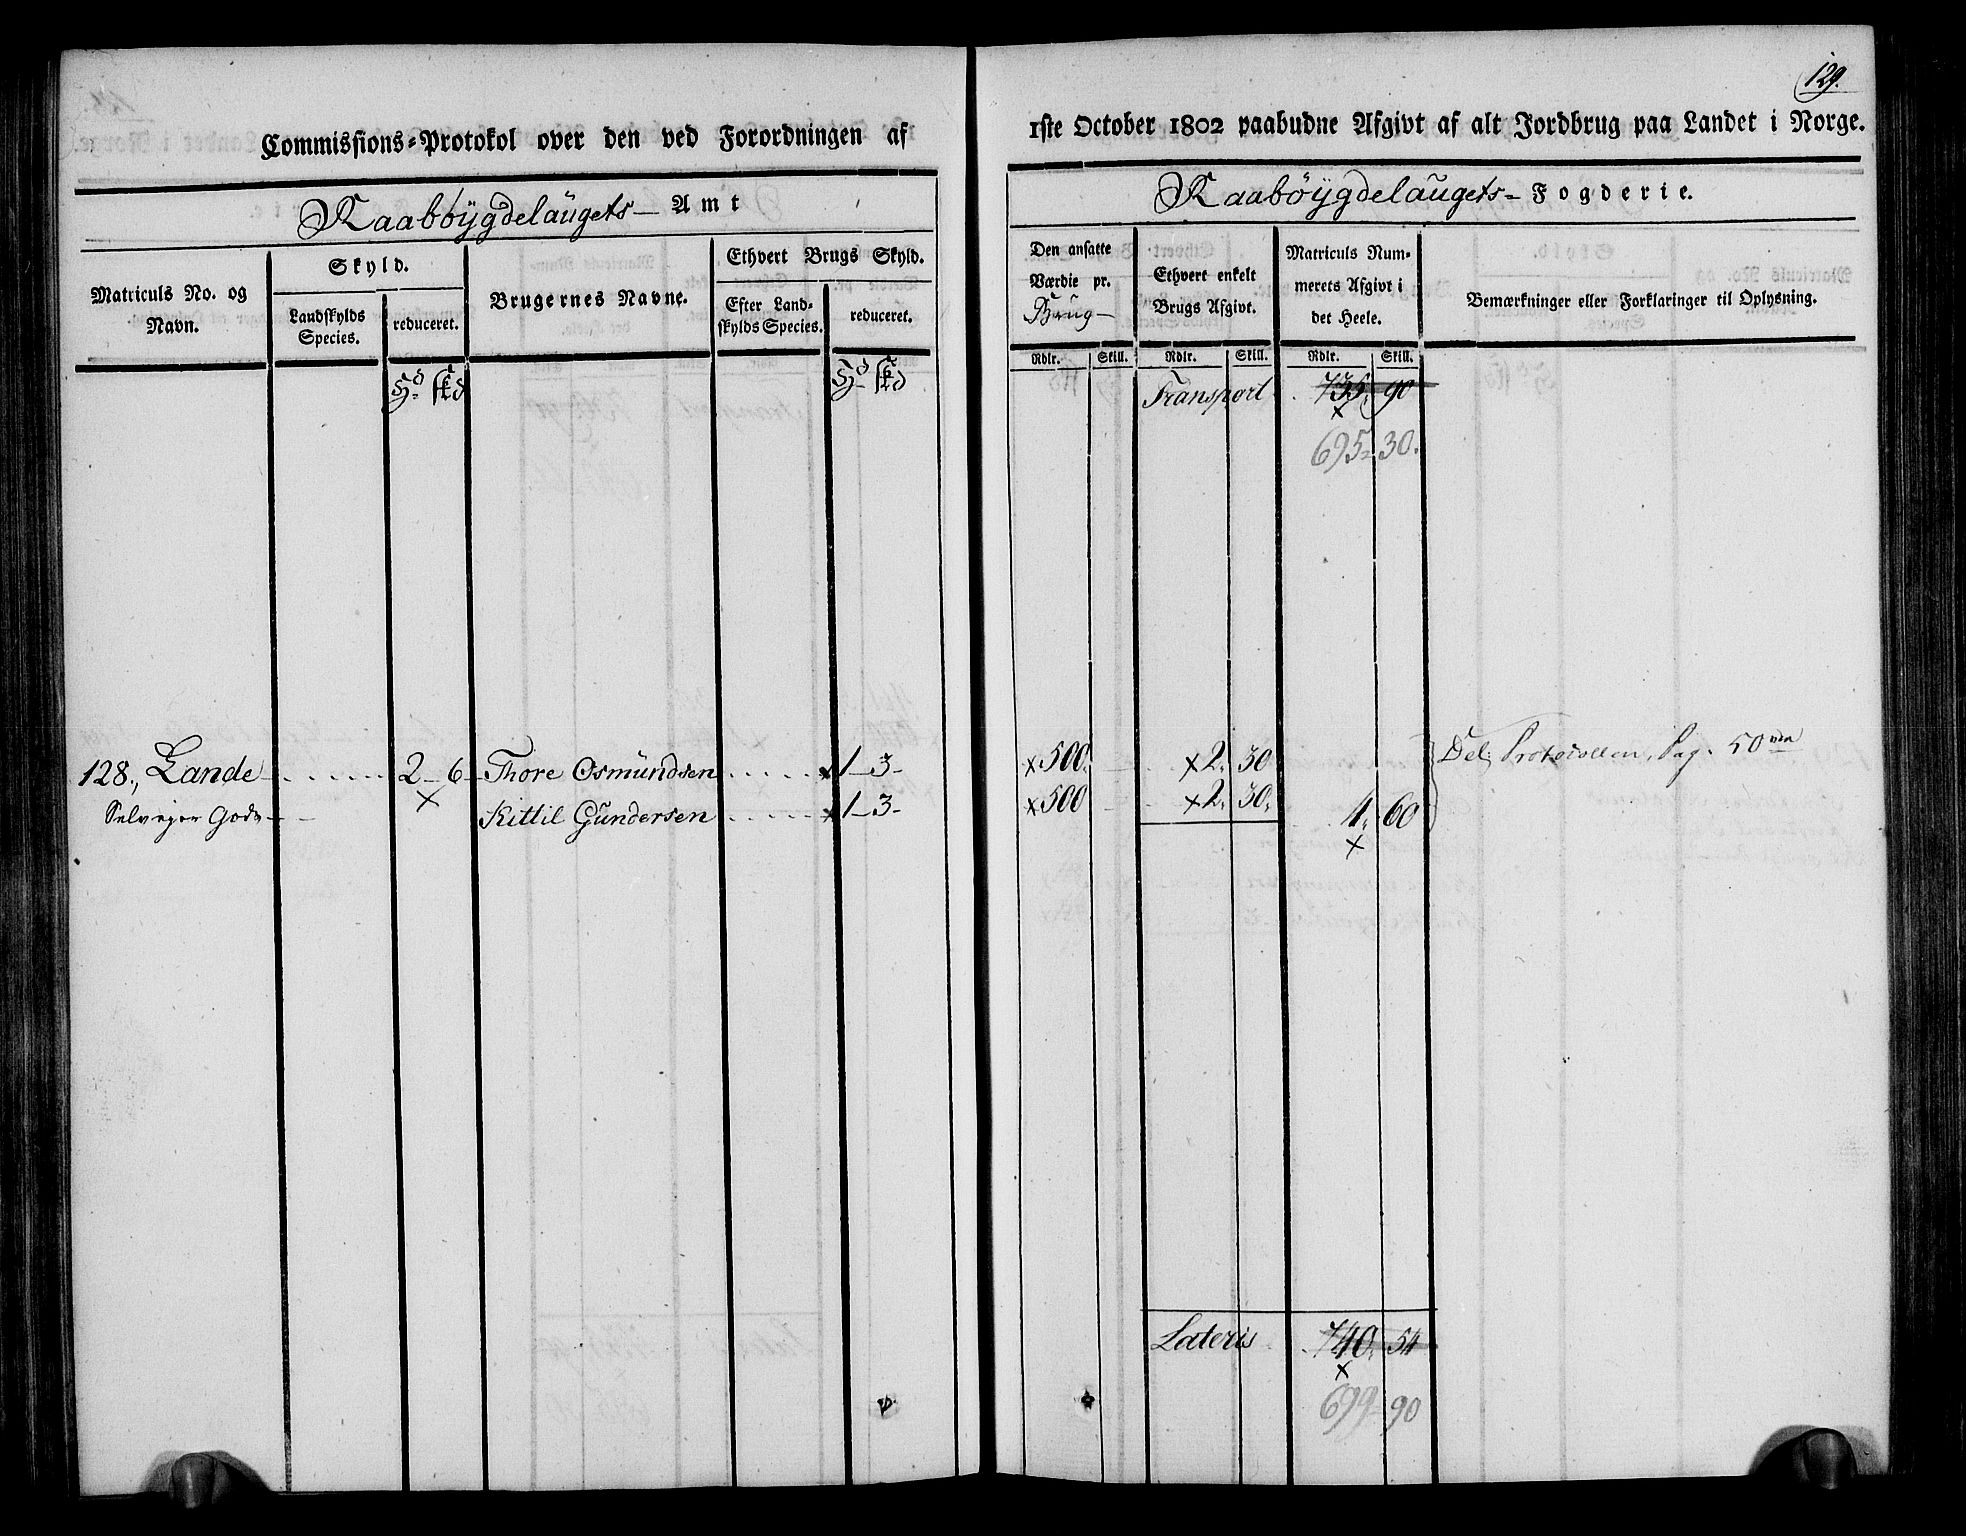 129.
Commissions-Protokol over den ved Forordningen af
1ste October 1802 paabudne Afgivt af alt Jordbrug paa Landet i Norge.
Raabøygdelaugets Amt
Raabøygdelaugets Fogderie.
Matriculs No. og Navn.
Skyld.
Landskylds Species.
reduceret.
Brugernes Navne.
Ethvert Brugs Skyld.
Efter Landskylds Species.
reduceret.
Den ansatte Værdie pr. Brug
Ethvert enkelt Brugs Afgivt.
Matriculs Nummerets Afgivt i det Heele.
Bemærkninger eller Forklaringer til Oplysning.
Rdlr. Skill. Rdlr. Skill. Rdlr. Skill.
Hd skd Hd skd
Transport 735, 90
x
695 30.
128, Lande 2 6 Thore Osmundsen x 1 3 x 500 x 2, 30 Del. Protocollen, Pag. 50
Selveyer Gods x Kittil Gundersen x 1 3 x 500 x 2, 30, 4, 60
x
Lateris 740, 54
x
699 90